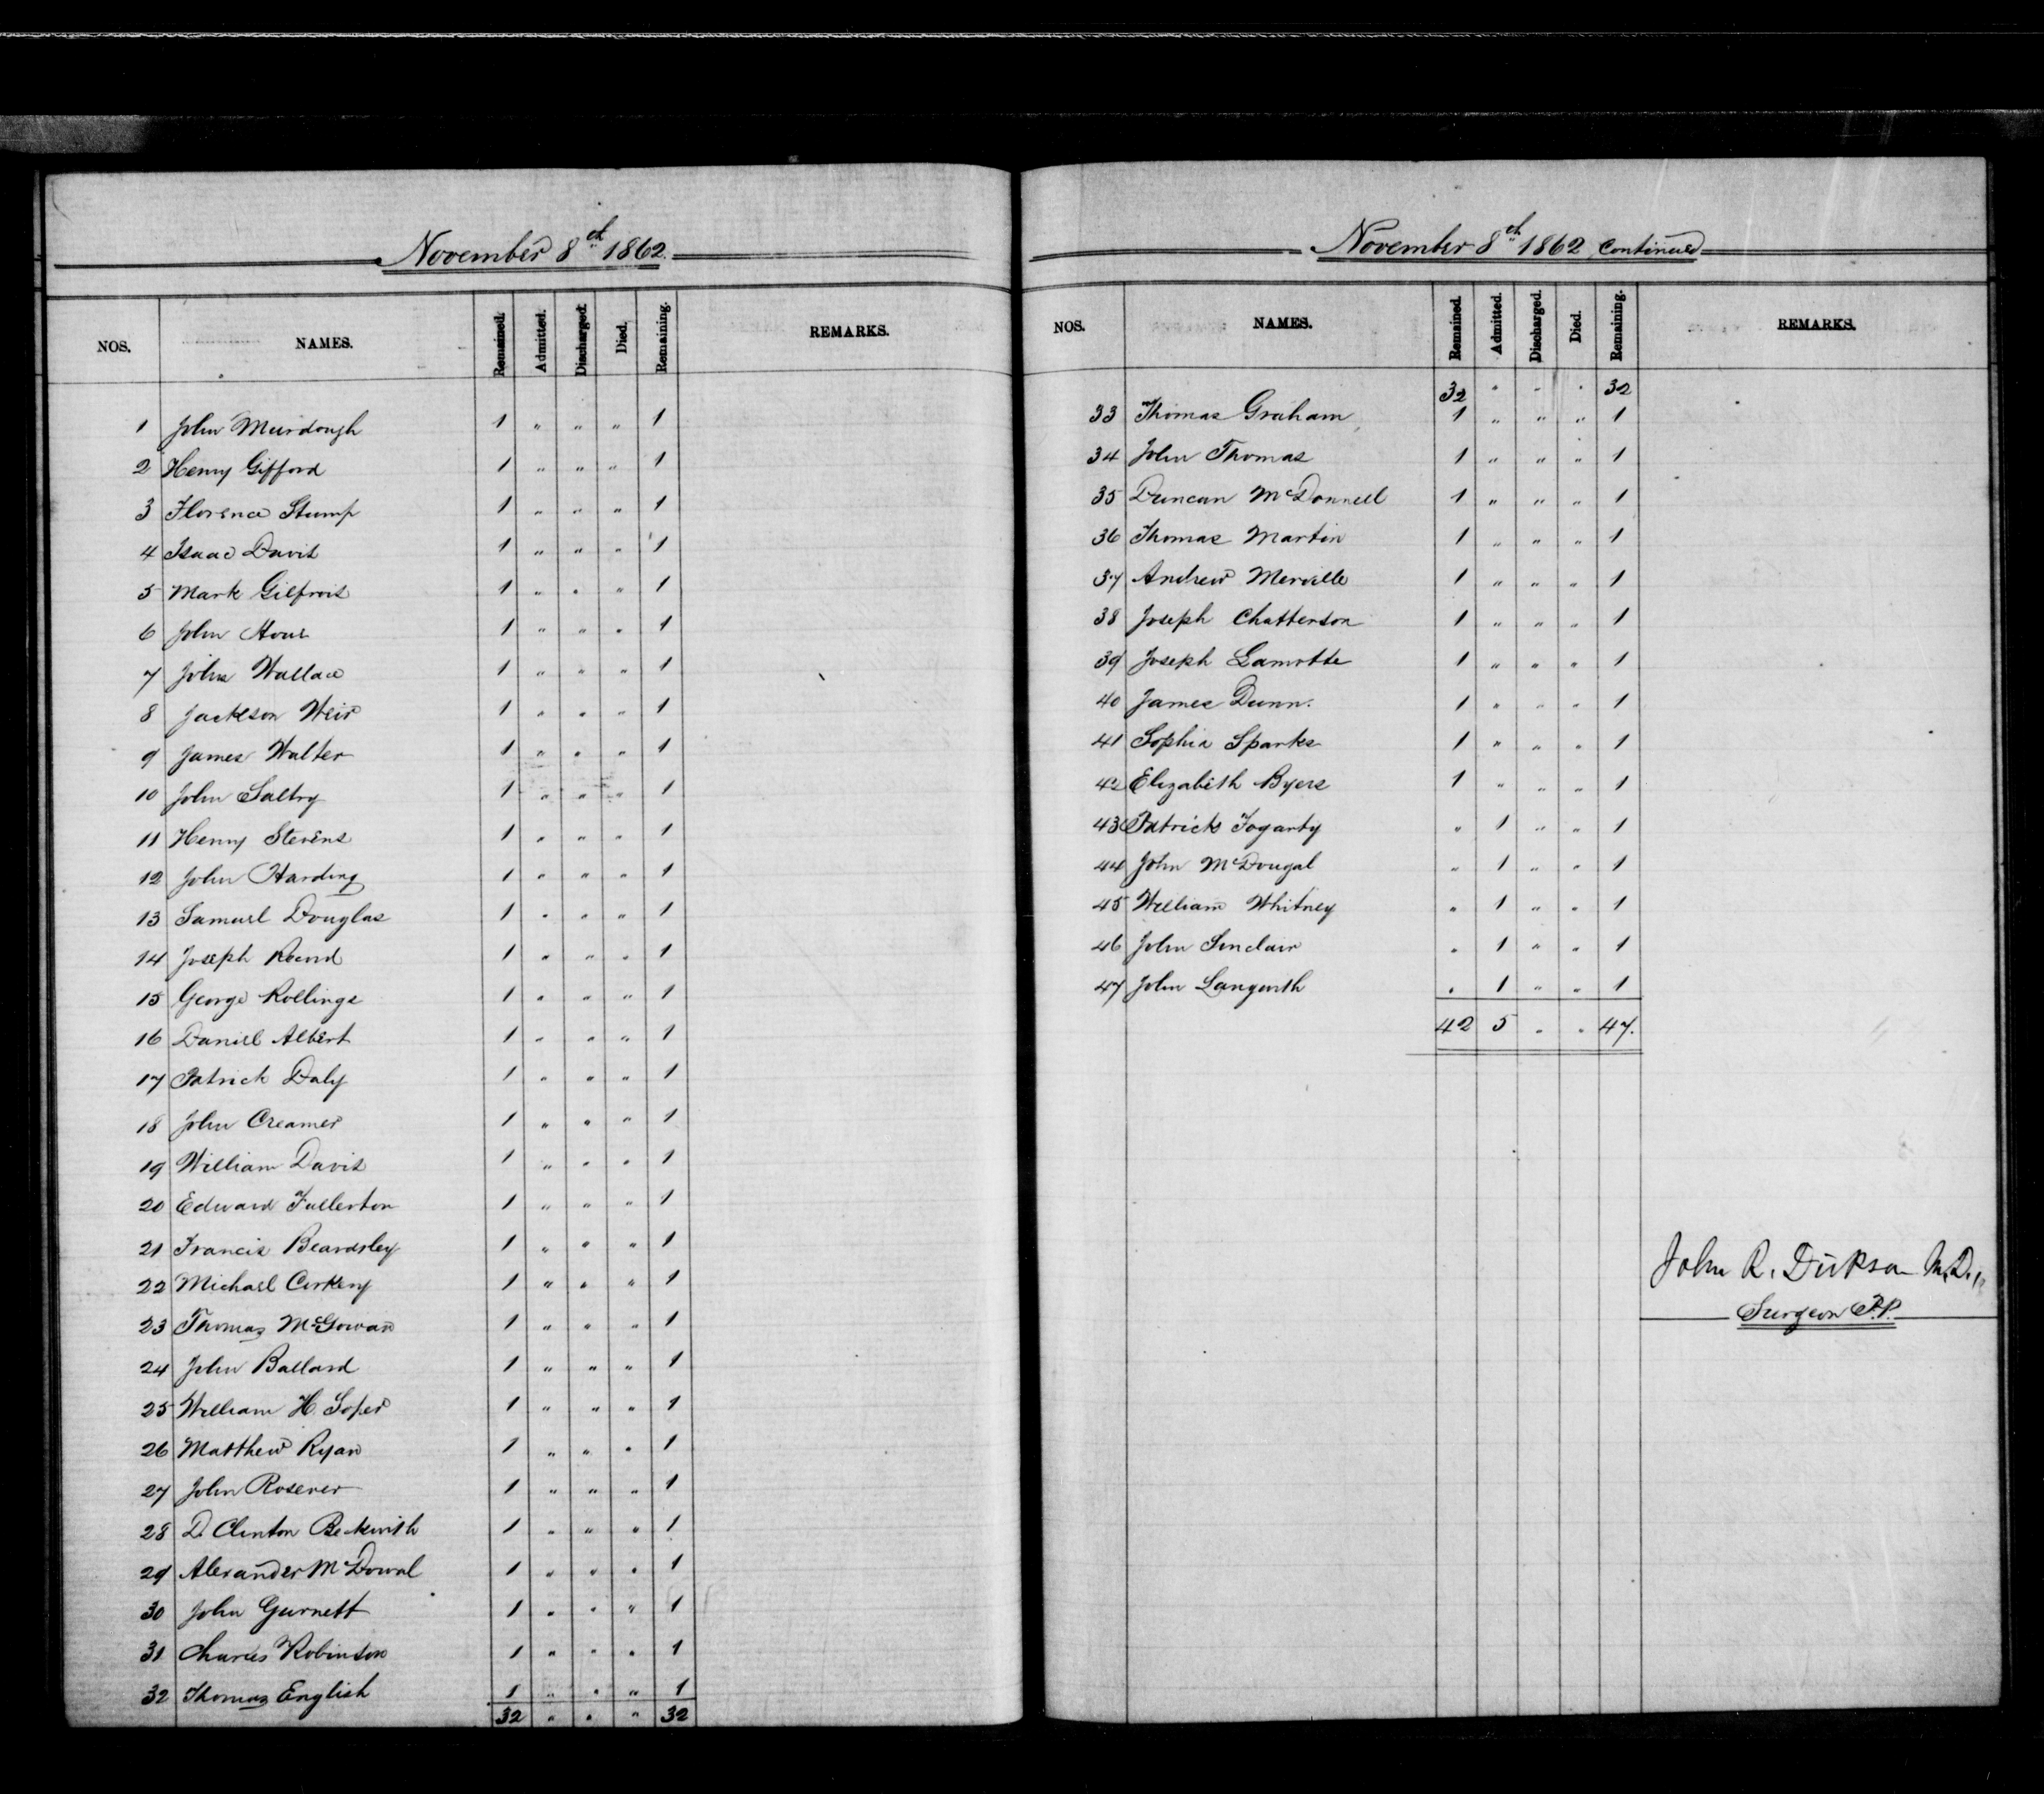 November 8th 1862.
NOS. NAMES. Remained. Admitted. Discharged. Died. Remaining. REMARKS.
1 John Murdough 1 " " " 1
2 Henry Gifford 1 " " " 1
3 Florence Stump 1 " " " 1
4 Isaac Davis 1 " " " 1
5 Mark 1 " " " 1
6 John 1 " " " 1
7 John Wallace 1 " " " 1
8 Jackson Weir 1 " " " 1
9 James Walter 1 " " " 1
10 John Saltry 1 " " " 1
11 Henry Stevens 1 " " " 1
12 John Harding 1 " " " 1
13 Samuel Douglas 1 " " " 1
14 Joseph Record 1 " " " 1
15 George Rollings 1 " " " 1
16 Daniel Albert 1 " " " 1
17 Patrick Daly 1 " " " 1
18 John Creamer 1 " " " 1
19 William Davis 1 " " " 1
20 Edward Fullerton 1 " " " 1
21 Francis Beardsley 1 " " " 1
22 Michael Corkery 1 " " " 1
23 Thomas McGowan 1 " " " 1
24 John Ballard 1 " " " 1
25 William H. Soper 1 " " " 1
26 Matthew Ryan 1 " " " 1
27 John Rosever 1 " " " 1
28 D. Clinton Beckwith 1 " " " 1
29 Alexander McDowal 1 " " " 1
30 John Gurnett 1 " " " 1
31 Charles Robinson 1 " " " 1
32 Thomas English 1 " " " 1
32 " " " 32
November 8th 1862 Continued
NOS. NAMES. Remained. Admitted. Discharged. Died. Remaining. REMARKS.
32 " " " 32
33 Thomas Graham 1 " " " 1
34 John Thomas 1 " " " 1
35 Duncan McDonnell 1 " " " 1
36 Thomas Martin 1 " " " 1
37 Andrew Merville 1 " " " 1
38 Joseph Chatterson 1 " " " 1
39 Joseph Lamotte 1 " " " 1
40 James Dunn. 1 " " " 1
41 Sophia Sparks 1 " " " 1
42 Elizabeth Byers 1 " " " 1
43 Patrick Fogarty " 1 " " 1
44 John McDougal " 1 " " 1
45 William Whitney " 1 " " 1
46 John Sinclair " 1 " " 1
47 John Langwith " 1 " " 1
42 5 " " 47.
John R. Dickson M.D.,
Surgeon P.P.